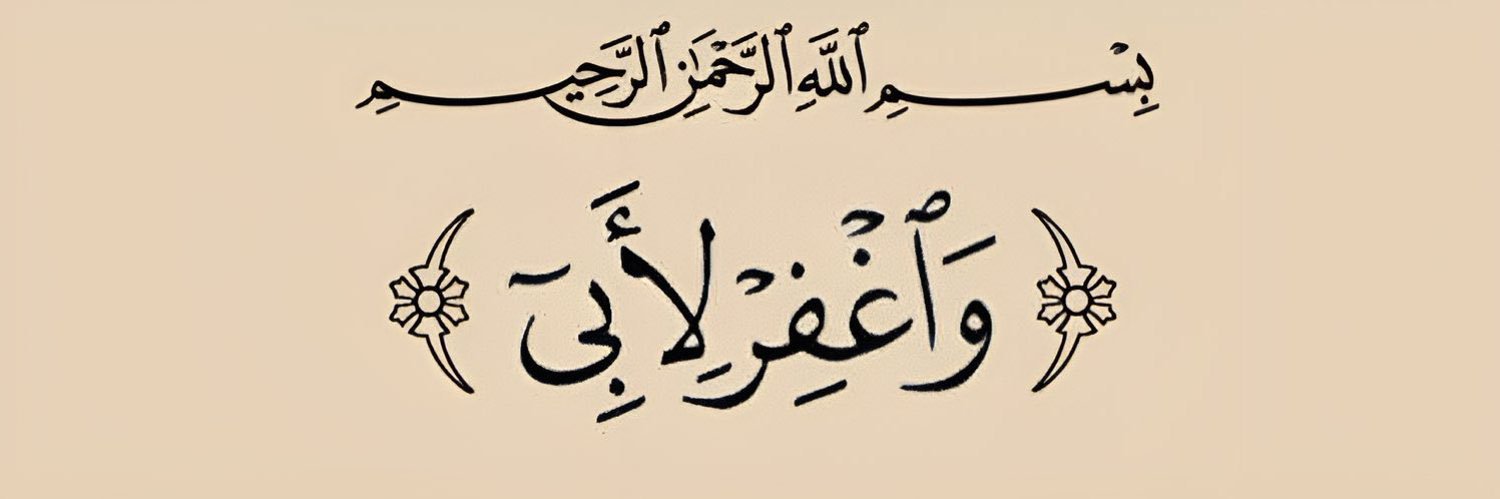 بِسْمِ ٱللَّهِ ٱلرَّحْمَٰنِ ٱلرَّحِيمِ
وَٱغْفِرْ لِأَبِىٓ